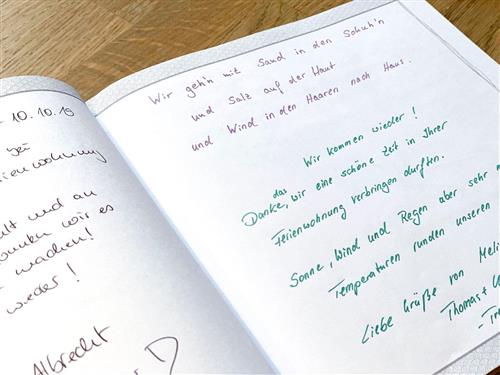 - 10.10.19
bei
ienwohnung
und an
konnten wir es
wachen!
wieder!
Albrecht
Wir geh'n mit Sand in den Schuh'n
und Salz auf der Haut
und Wind in den Haaren nach Haus.
Wir kommen wieder!
Danke, das wir eine schöne Zeit in Ihrer
Ferienwohnung verbringen durften.
Sonne, Wind und Regen aber sehr m
Temperaturen runden unseren
Liebe Grüße von Meli
Thomas +